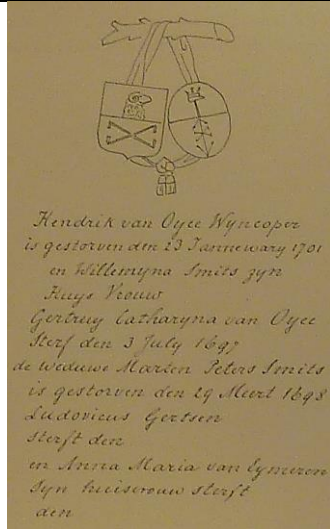 Hendrik van Oyee Wyncoper
is gestorven den 23 Jannewary 1701
en Willemyna Smits zyn
Huys Vrouw
Gertruy Catharyna van Oyee
Sterf den 3 July 1697
de Weduwe Marten Peters Smits
is gestorven den 29 Meert 1698
Ludovicus Gertsen
sterft den
en Anna Maria van Eymeren
Syn huisvrouw sterft
den